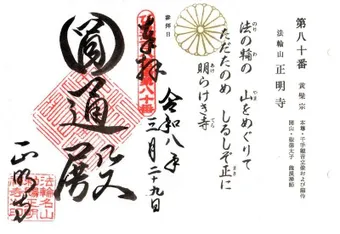 第八十番
黄檗宗
法輪山 正明寺
本尊・千手観音立像および脇侍
開山・聖徳太子 龍溪禅師
法の輪の 山をめぐりて
のり わ やま
ただたのめ しるしぞ正に
まさ
明らけき寺
あけ てら
参拝日
令和八年
三月二十九日
奉拝
圓通殿
正明寺